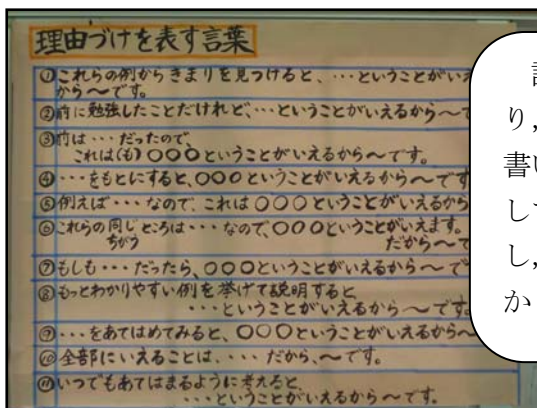 理由づけを表す言葉
①これらの例からきまりを見つけると、…ということがいえ
から〜です。
②前に勉強したことだけれど、…ということがいえるから〜で
③前は…だったので、
これは(も)〇〇〇ということがいえるから〜です。
④…をもとにすると、〇〇〇ということがいえるから〜です
⑤例えば…なので、これは〇〇〇ということがいえるから
⑥これらの同じところは…なので、〇〇〇ということがいえます。
ちがう
だから〜で
⑦もしも…だったら、〇〇〇ということがいえるから〜で
⑧もっとわかりやすい例を挙げて説明すると、
…ということがいえるから〜です。
⑨…をあてはめてみると、〇〇〇ということがいえるから〜
⑩全部にいえることは、…だから、〜です。
⑪いつでもあてはまるように考えると、
…ということがいえるから〜です。
り,
書い
して
し,
か